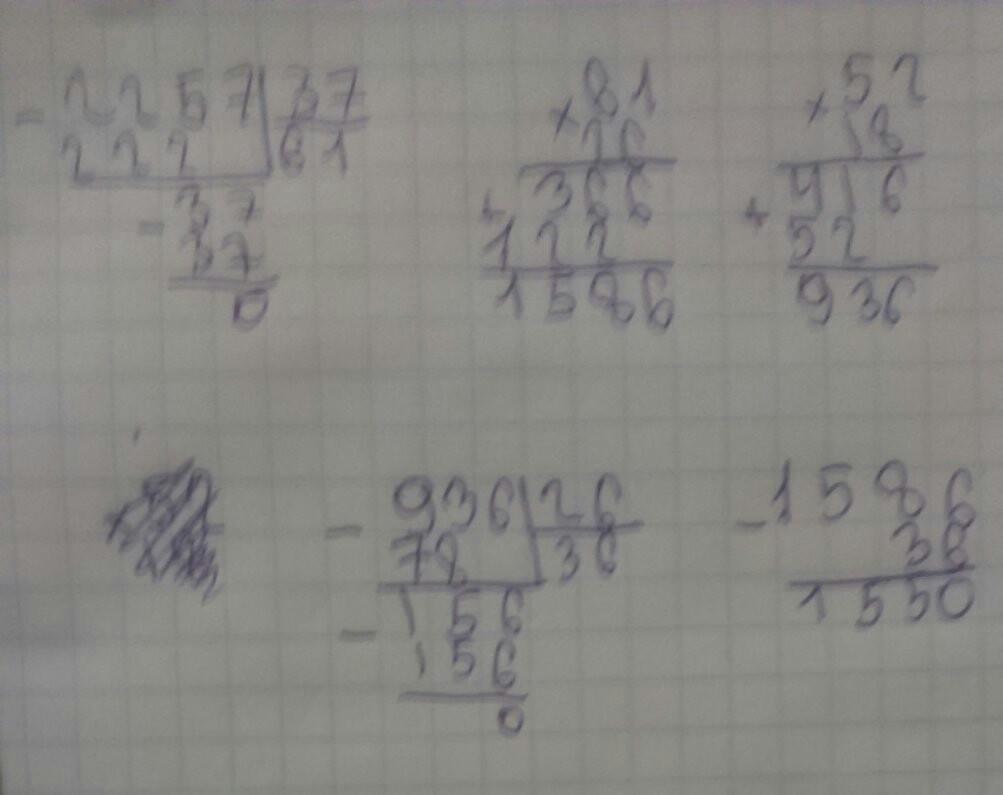 - 2257 | 37
222 | 61
- 37
37
0
× 81
26
366
+ 122
1586
× 52
18
+ 916
52
936
- 936 | 26
78 | 36
- 156
156
0
- 1586
36
1550